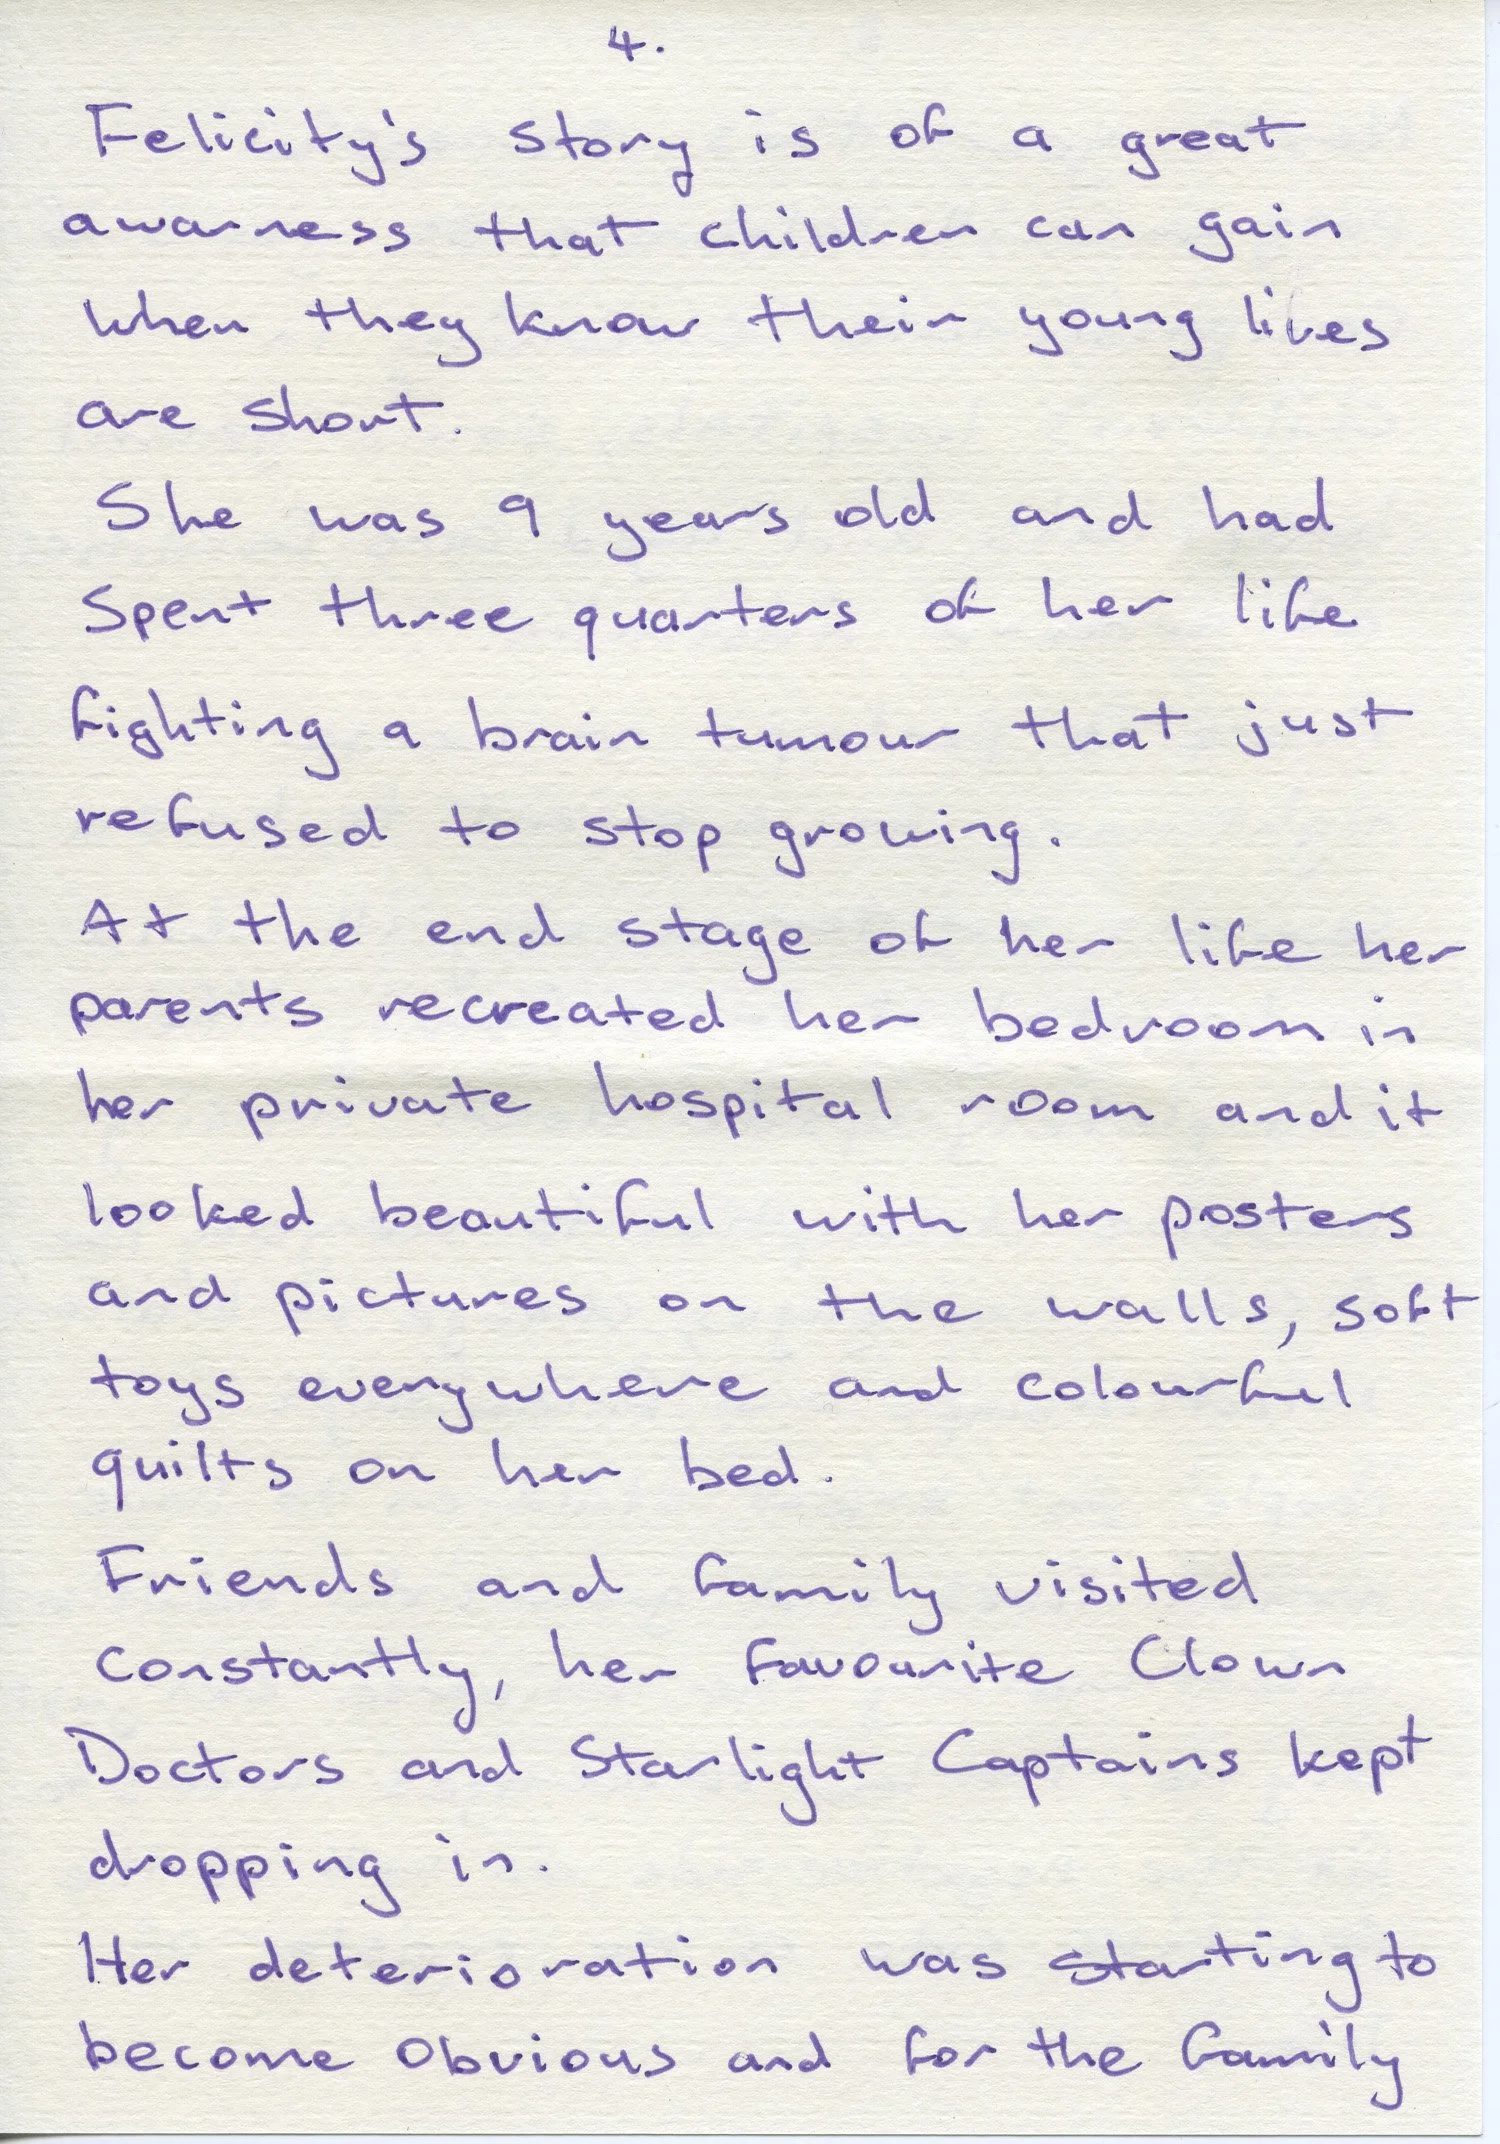 4.
Felicity's story is of a great
awarness that children can gain
when they know their young lives
are short.
She was 9 years old and had
Spent three quarters of her life
fighting a brain tumour that just
refused to stop growing.
At the end stage of her life her
parents recreated her bedroom in
her private hospital room and it
looked beautiful with her posters
and pictures on the walls, soft
toys everywhere and colourful
quilts on her bed.
Friends and family visited
constantly, her favourite Clown
Doctors and Starlight Captains kept
dropping in.
Her deterioration was starting to
become obvious and for the family